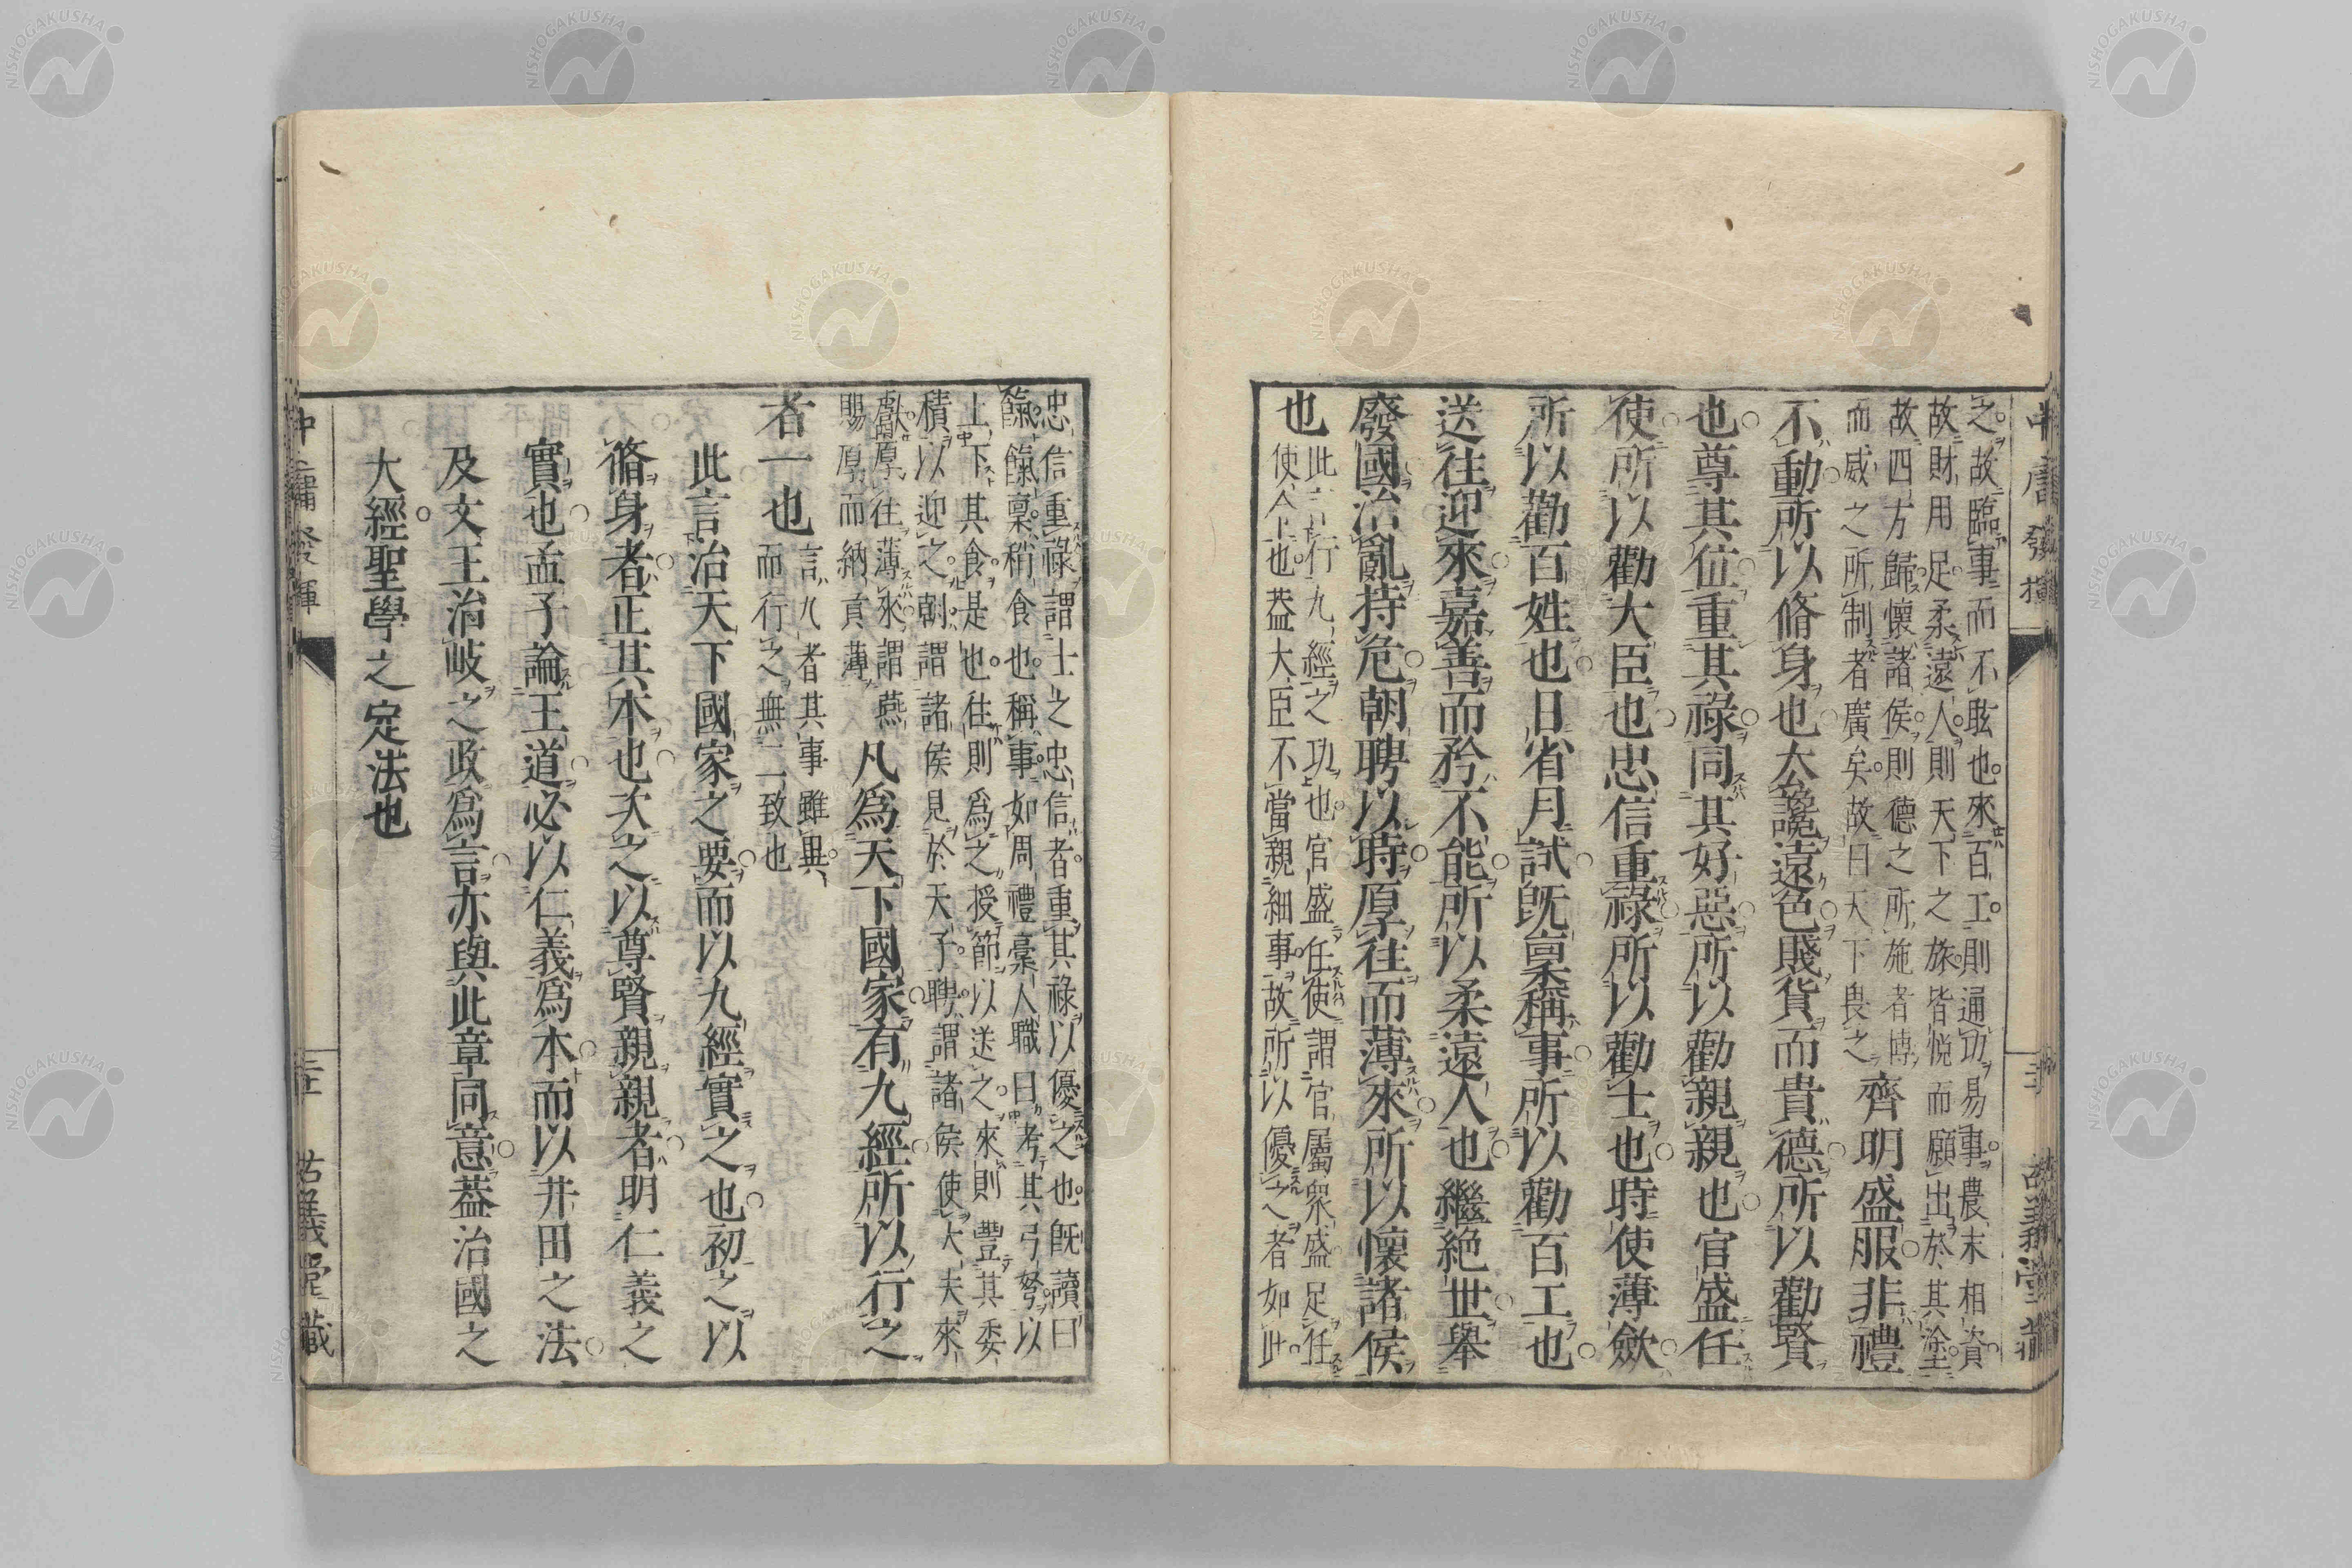 中庸發揮
古義堂藏
之故臨事而不眩也來百工則通功易事農末相資
故財用足柔遠人則天下之旅皆悦而願出於其塗
故四方歸懷諸侯則德之所施者博
而威之所制者廣矣故曰天下畏之
齊明盛服非禮
不動所以脩身也去讒遠色賤貨而貴德所以勸賢
也尊其位重其祿同其好惡所以勸親親也官盛任
使所以勸大臣也忠信重祿所以勸士也時使薄斂
所以勸百姓也日省月試既稟稱事所以勸百工也
送往迎來嘉善而矜不能所以柔遠人也繼絶世舉
廢國治亂持危朝聘以時厚往而薄來所以懷諸侯
也
此言行九經之功也官盛任使謂官屬衆盛足任
使令也葢大臣不當親細事故所以優之者如此
忠信重祿謂士之忠信者重其祿以優之也既讀曰
餼餼稟稍食也稱事如周禮藁人職曰考其弓弩以
上下其食是也往則爲之授節以送之來則豐其委
積以迎之朝謂諸侯見於天子聘謂諸侯使大夫來
獻厚往薄來謂燕
賜厚而納貢薄
凡爲天下國家有九經所以行之
者一也
言九者其事雖異
而行之無二致也
此言治天下國家之要而以九經實之也初之以
脩身者正其本也次之以尊賢親親者明仁義之
實也孟子論王道必以仁義爲本而以井田之法
及文王治岐之政爲言亦與此章同意葢治國之
大經聖學之定法也
中庸發揮
古義堂藏
NISHOGAKUSHA